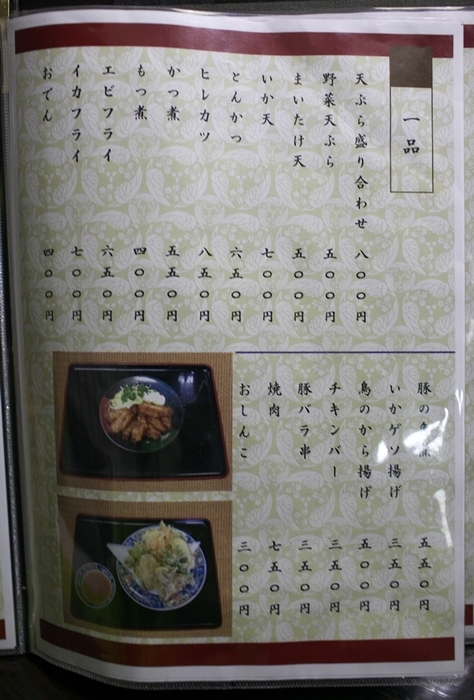 一品
天ぷら盛り合わせ 八〇〇円
野菜天ぷら 五〇〇円
まいたけ天 五〇〇円
いか天 七〇〇円
とんかつ 六五〇円
ヒレカツ 八五〇円
かつ煮 五五〇円
もつ煮 四〇〇円
エビフライ 六五〇円
イカフライ 七〇〇円
おでん 四〇〇円
豚の 五五〇円
いかゲソ揚げ 三五〇円
鳥のから揚げ 五〇〇円
チキンバー 三五〇円
豚バラ串 三五〇円
焼肉 七五〇円
おしんこ 三〇〇円